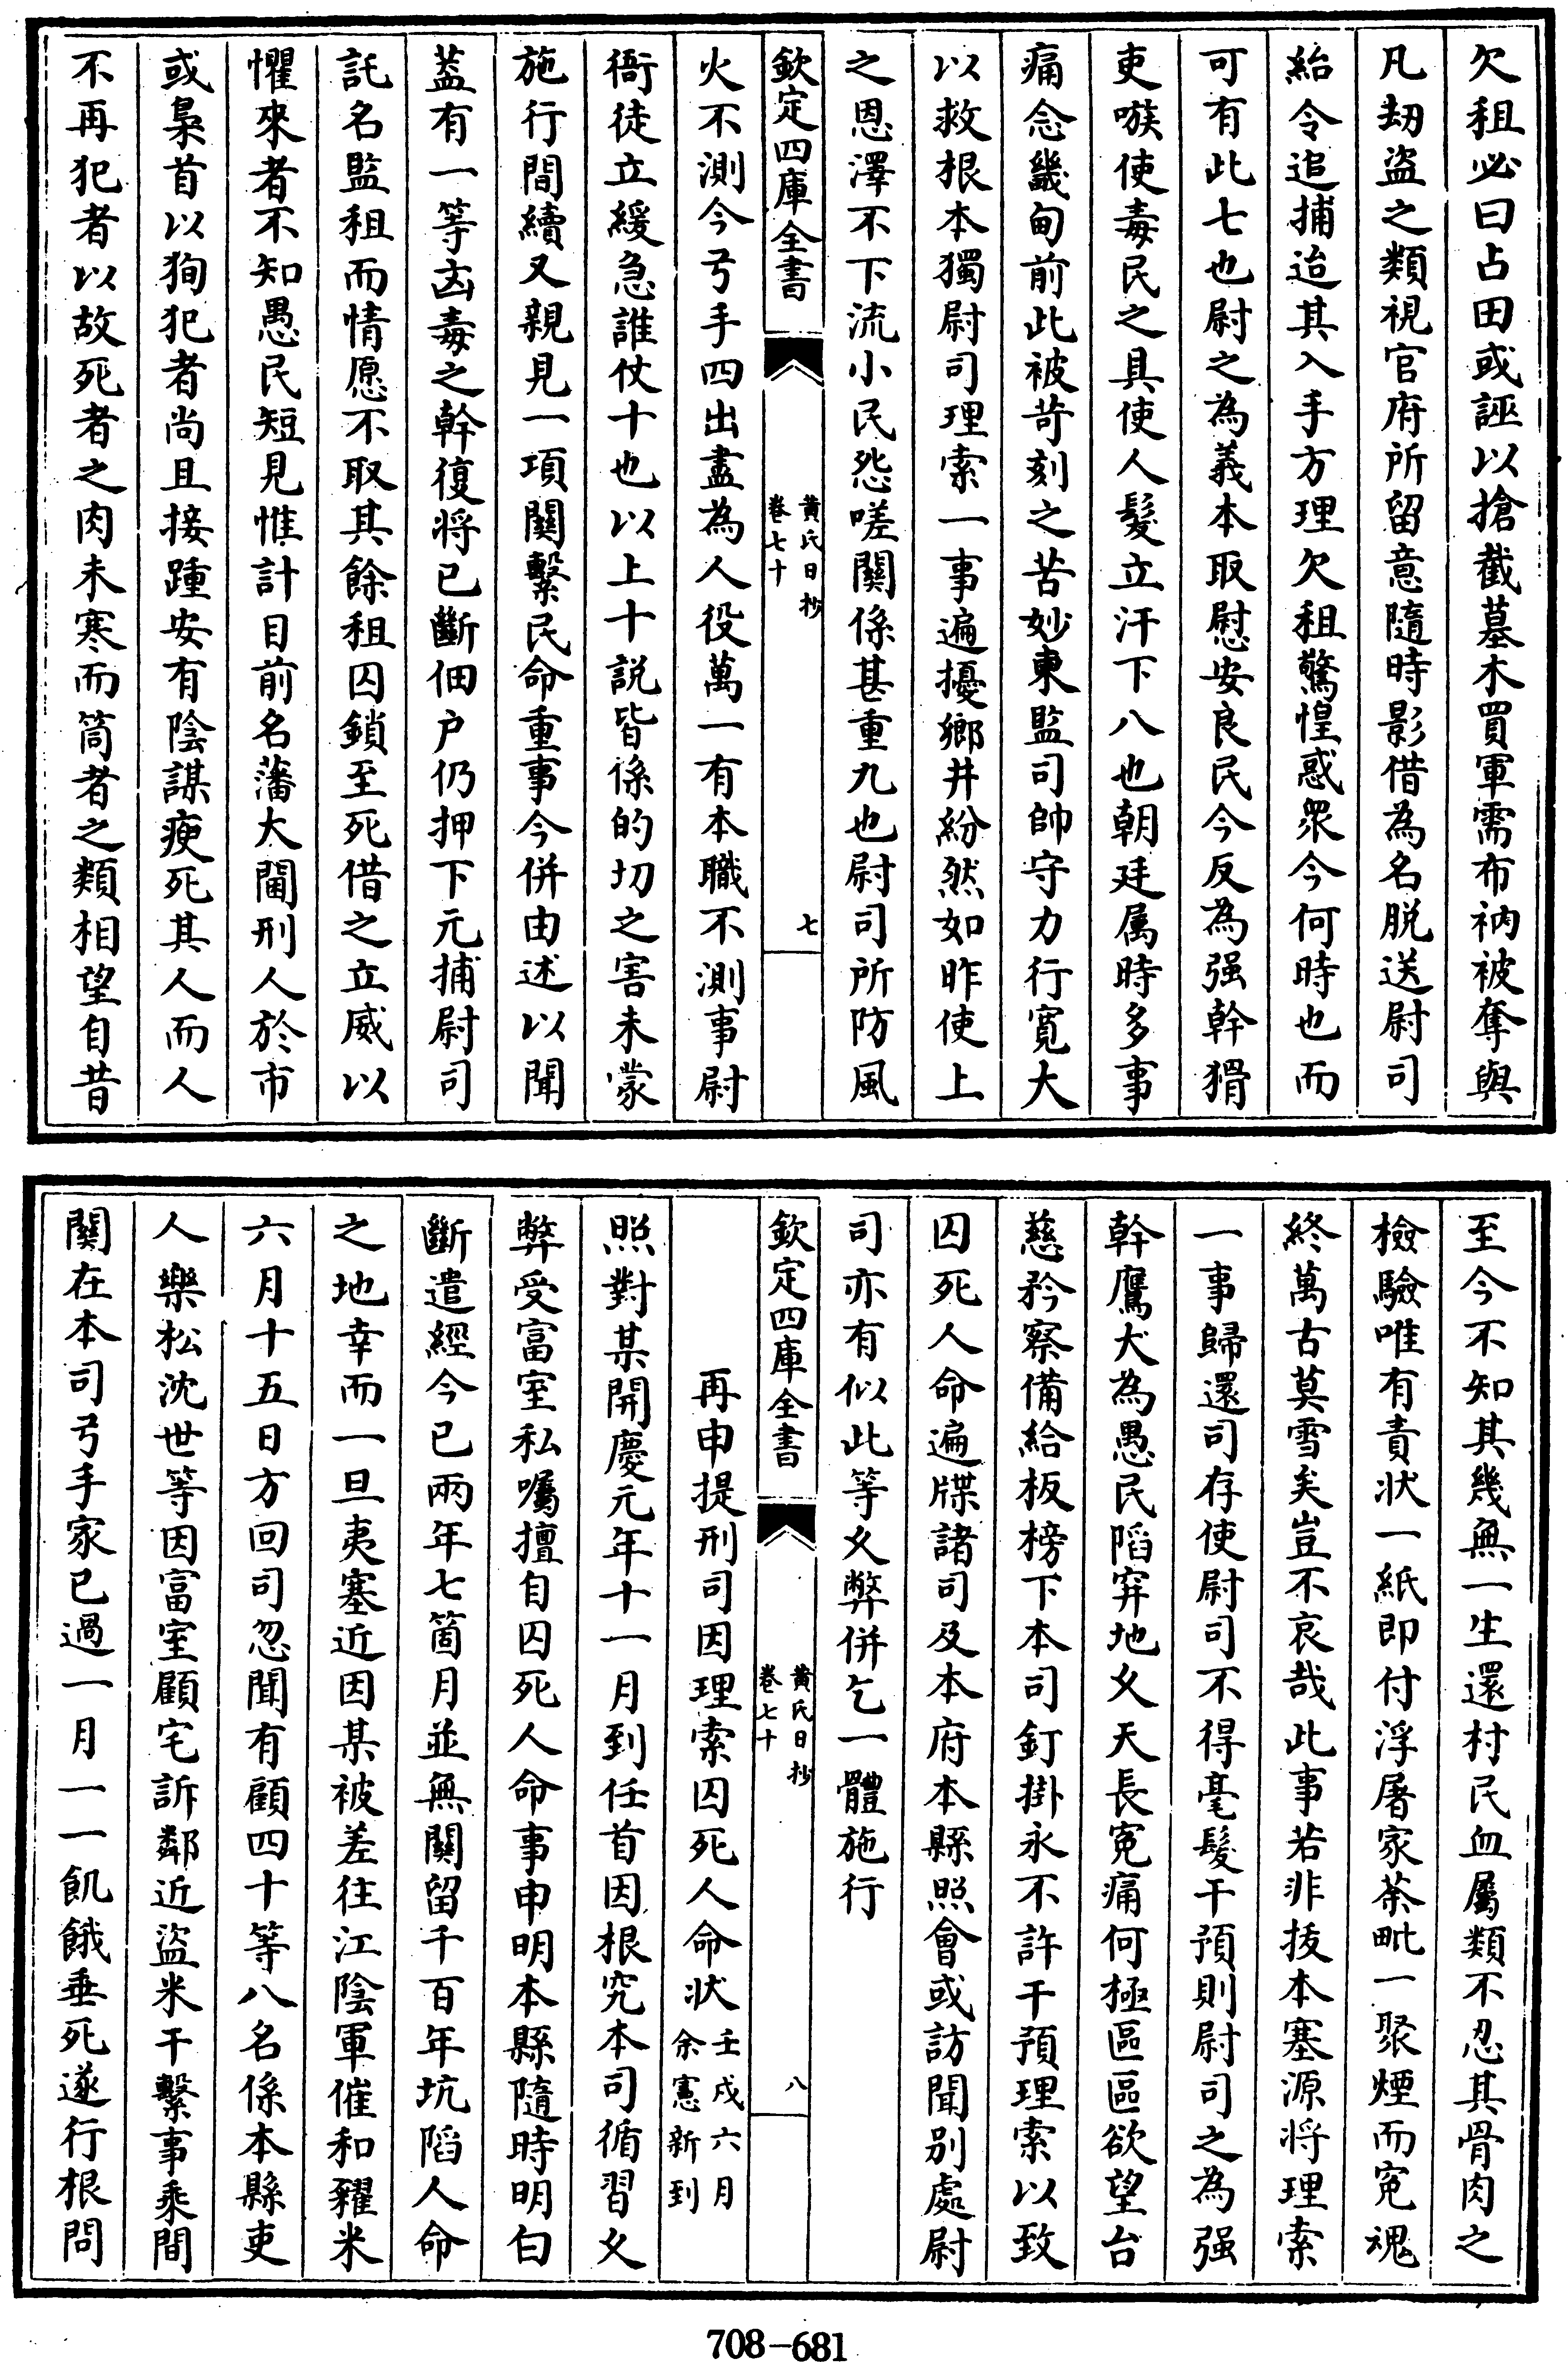 欠租必曰占田或誣以搶截墓木買軍需布衲被奪與
凡劫盜之類視官府所留意隨時影借為名脱送尉司
紿令追捕迨其入手方理欠租驚惶惑衆今何時也而
可有此七也尉之為義本取慰安良民今反為强幹猾
吏嗾使毒民之具使人髮立汗下八也朝廷属時多事
痛念畿甸前此被苛刻之苦妙東監司帥守力行寛大
以救根本獨尉司理索一事遍擾鄉井紛然如昨使上
之恩澤不下流小民怨嗟關係甚重九也尉司所防風
欽定四庫全書
黄氏日抄
卷七十
七
火不測今弓手四出盡為人役萬一有本職不測事尉
衙徒立緩急誰仗十也以上十説皆係的切之害未蒙
施行間續又親見一項關繫民命重事今併由述以聞
蓋有一等凶毒之幹復将已斷佃户仍押下元捕尉司
託名監租而情愿不取其餘租囚鎖至死借之立威以
懼來者不知愚民短見惟計目前名藩大閫刑人於市
或梟首以狥犯者尚且接踵安有陰謀瘐死其人而人
不再犯者以故死者之肉未寒而筒者之類相望自昔
至今不知其幾無一生還村民血屬類不忍其骨肉之
檢驗唯有責狀一紙即付浮屠家荼毗一聚煙而寃魂
終萬古莫雪矣豈不哀哉此事若非拔本塞源将理索
一事歸還司存使尉司不得毫髮干預則尉司之為强
幹鷹犬為愚民陷穽地乂天長寃痛何極區區欲望台
慈矜察備給板榜下本司釘掛永不許干預理索以致
囚死人命遍牒諸司及本府本縣照會或訪聞别處尉
司亦有似此等乂弊併乞一體施行
欽定四庫全書
黄氏日抄
卷七十
八
再申提刑司因理索囚死人命狀壬戌六月余憲新到
照對某開慶元年十一月到任首因根究本司循習乂
弊受富室私囑擅自囚死人命事申明本縣隨時明白
斷遣經今已兩年七箇月並無關留千百年坑陷人命
之地幸而一旦夷塞近因某被差往江陰軍催和糴米
六月十五日方回司忽聞有顧四十等八名係本縣吏
人樂松沈世等因富室顧宅訴鄰近盜米干繫事乘間
關在本司弓手家已過一月一一飢餓垂死遂行根問
708-681